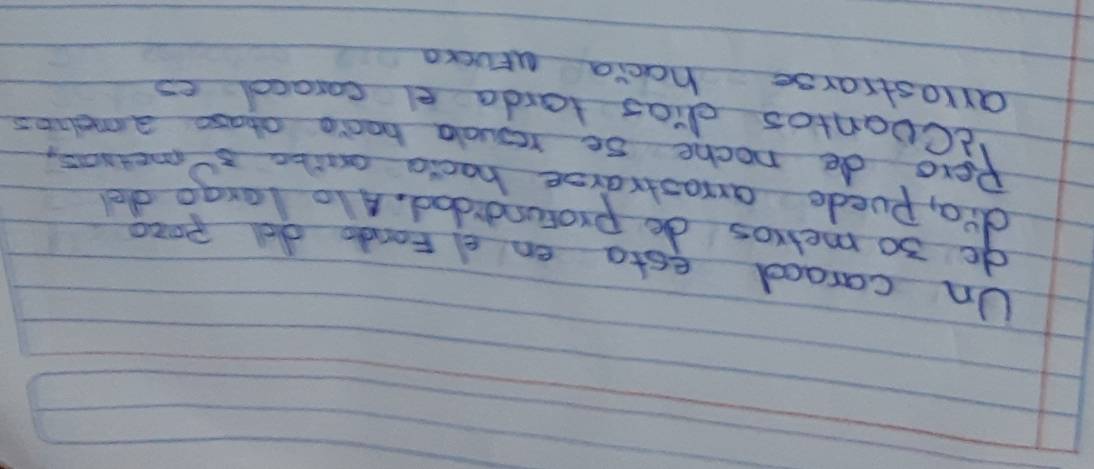 Un caracol esta en el Fondo del pozo
de 30 metros de profundidad. A lo largo del
día, puede arrastrarse hacia arriba 3 metros,
Pero de noche se resvala hacia atrass 2 metros
¿Cuantos días tarda el caracol en
arrostrarse hacia afuera